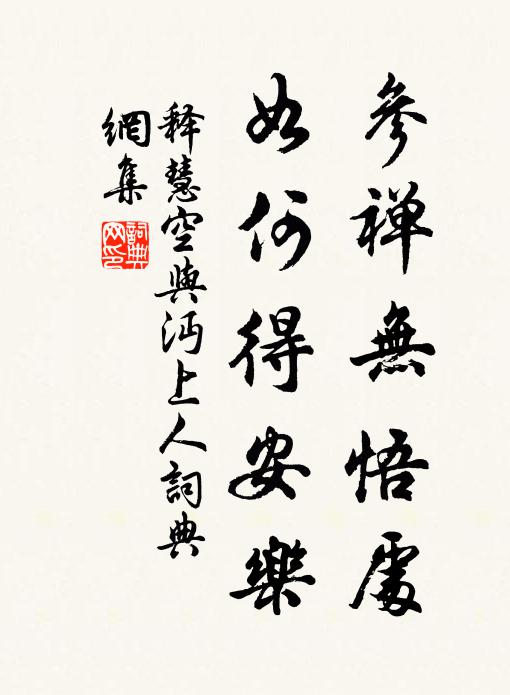 參禪無悟處
如何得安樂
释慧空與沔上人詞典
網集
詞典
网印